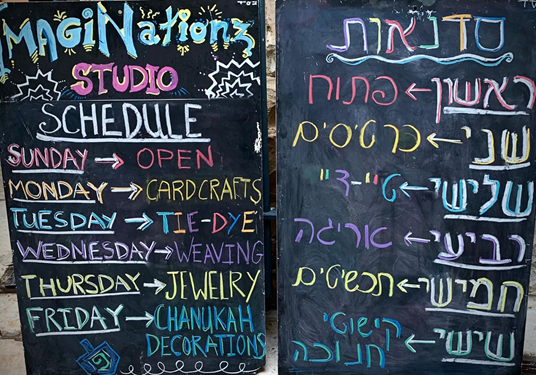 ImagiNationz
STUDIO
SCHEDULE
SUNDAY → OPEN
MONDAY → CARDCRAFTS
TUESDAY → TIE-DYE
WEDNESDAY → WEAVING
THURSDAY → JEWELRY
FRIDAY → CHANUKAH
DECORATIONS
סדנאות
ראשון ← פתוח
שני ← כרטיסים
שלישי ← טיי-דיי
רביעי ← אריגה
חמישי ← תכשיטים
שישי ← קישוטי
חנוכה